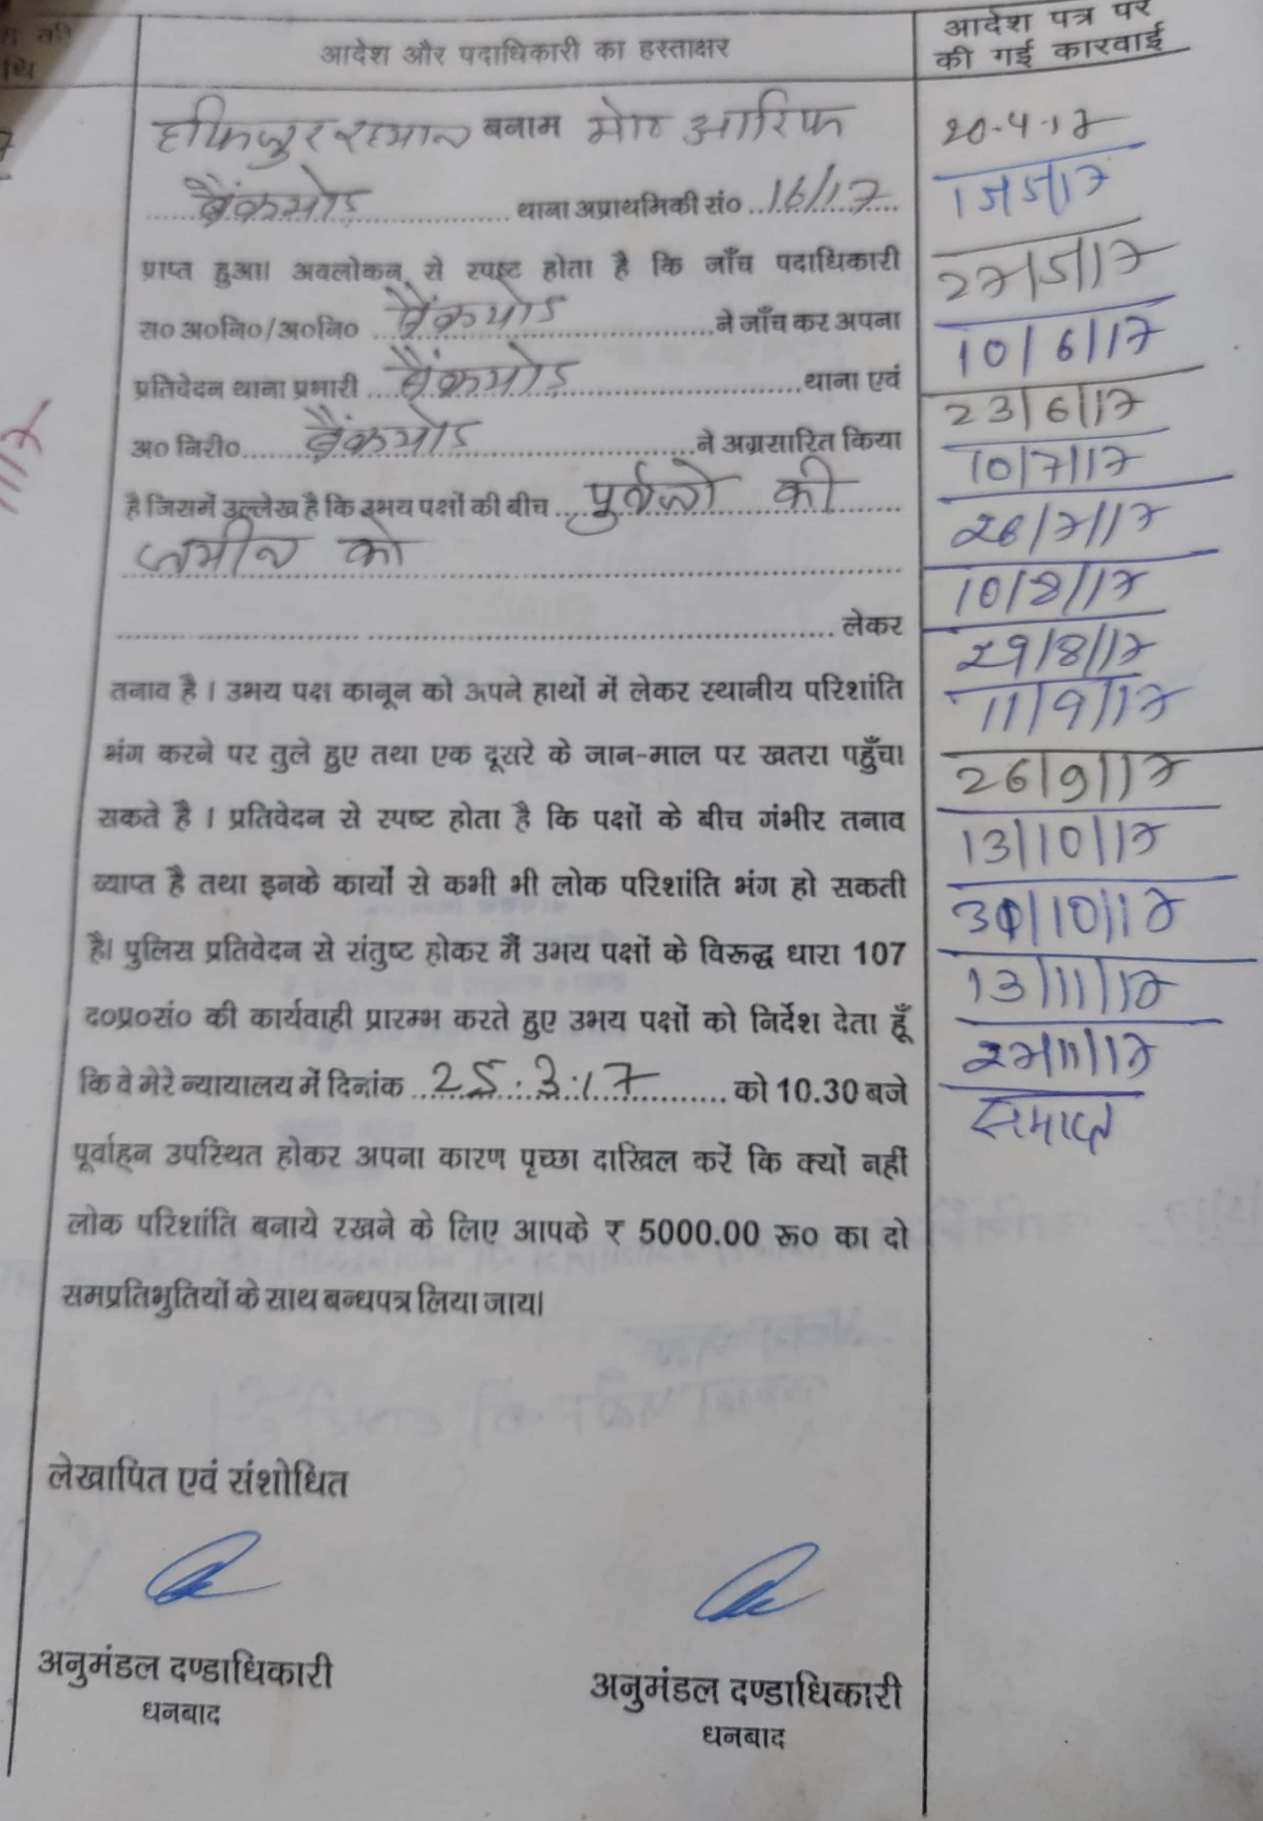 आदेश और पदाधिकारी का हस्ताक्षर
आदेश पत्र पर
की गई कारवाई
बनाम मो० आरिफ
बैंकमोड़ थाना अप्राथमिकी सं० 16/17
प्राप्त हुआ। अवलोकन से स्पष्ट होता है कि जाँच पदाधिकारी
स० अ०नि०/अ०नि० बैंकमोड़ ने जाँच कर अपना
प्रतिवेदन थाना प्रभारी बैंकमोड़ थाना एवं
अ० निरी० बैंकमोड़ ने अग्रसारित किया
है जिसमें उल्लेख है कि उभय पक्षों की बीच पुर्वजो की
जमीन को
लेकर
तनाव है । उभय पक्ष कानून को अपने हाथों में लेकर स्थानीय परिशांति
भंग करने पर तुले हुए तथा एक दूसरे के जान-माल पर खतरा पहुँचा
सकते है । प्रतिवेदन से स्पष्ट होता है कि पक्षों के बीच गंभीर तनाव
व्याप्त है तथा इनके कार्यों से कभी भी लोक परिशांति भंग हो सकती
है। पुलिस प्रतिवेदन से संतुष्ट होकर मैं उभय पक्षों के विरूद्ध धारा 107
द०प्र०सं० की कार्यवाही प्रारम्भ करते हुए उभय पक्षों को निर्देश देता हूँ
कि वे मेरे न्यायालय में दिनांक 25.3.17 को 10.30 बजे
पूर्वाहन उपस्थित होकर अपना कारण पृच्छा दाखिल करें कि क्यों नहीं
लोक परिशांति बनाये रखने के लिए आपके ₹ 5000.00 रू० का दो
समप्रतिभुतियों के साथ बन्धपत्र लिया जाय।
लेखापित एवं संशोधित
अनुमंडल दण्डाधिकारी
धनबाद
अनुमंडल दण्डाधिकारी
धनबाद
20-4-17
27/5/17
10/6/17
23/6/17
10/7/17
26/7/17
10/8/17
29/8/17
11/9/17
26/9/17
13/10/17
13/11/17
27/11/17
समाप्त